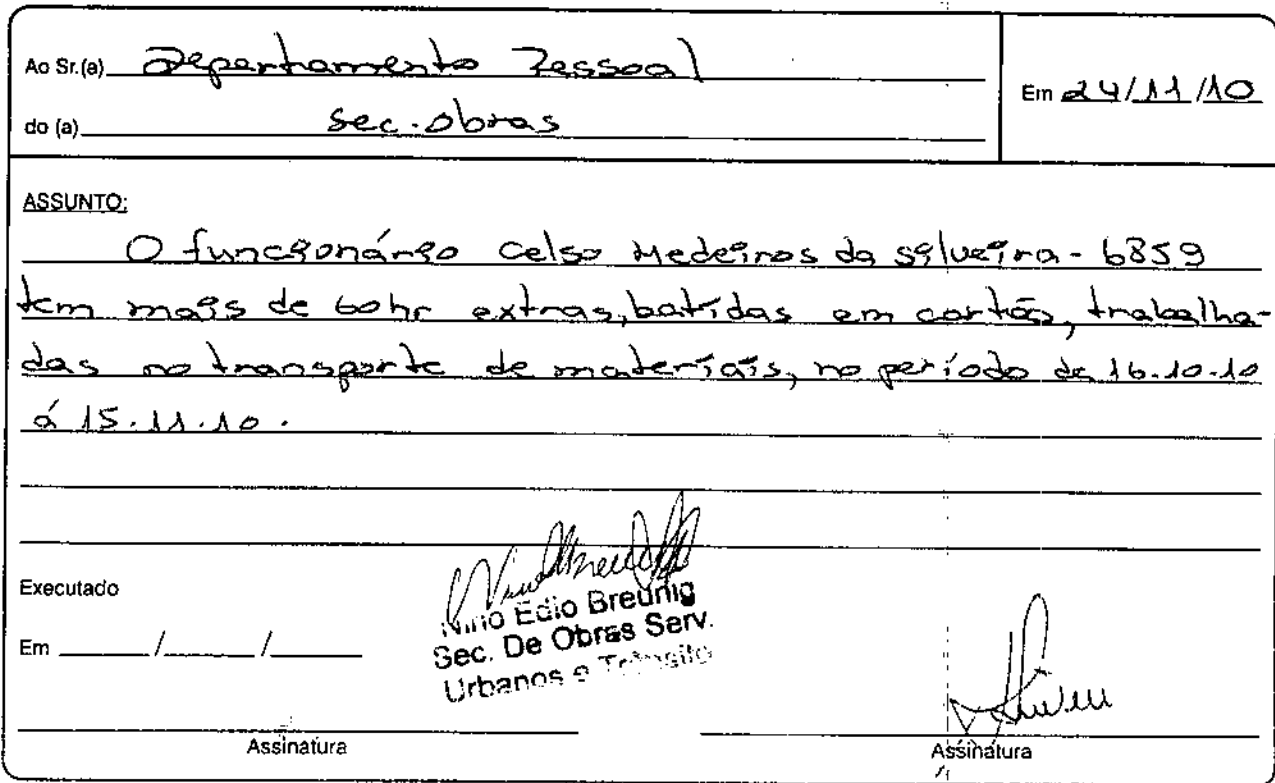 Ao Sr.(a) Departamento Pessoal
Em 24/11/10
do (a) Sec. Obras
ASSUNTO:
O funcionário Celso Medeiros da Silveira - 6859
tem mais de 60hr extras, batidas em cartão, trabalha-
das no transporte de materiais, no período de 16.10.10
á 15.11.10.
Executado
Em ___/___/___
Nino Edio Breunig
Sec. De Obras Serv.
Urbanos e Trânsito
Assinatura
Assinatura